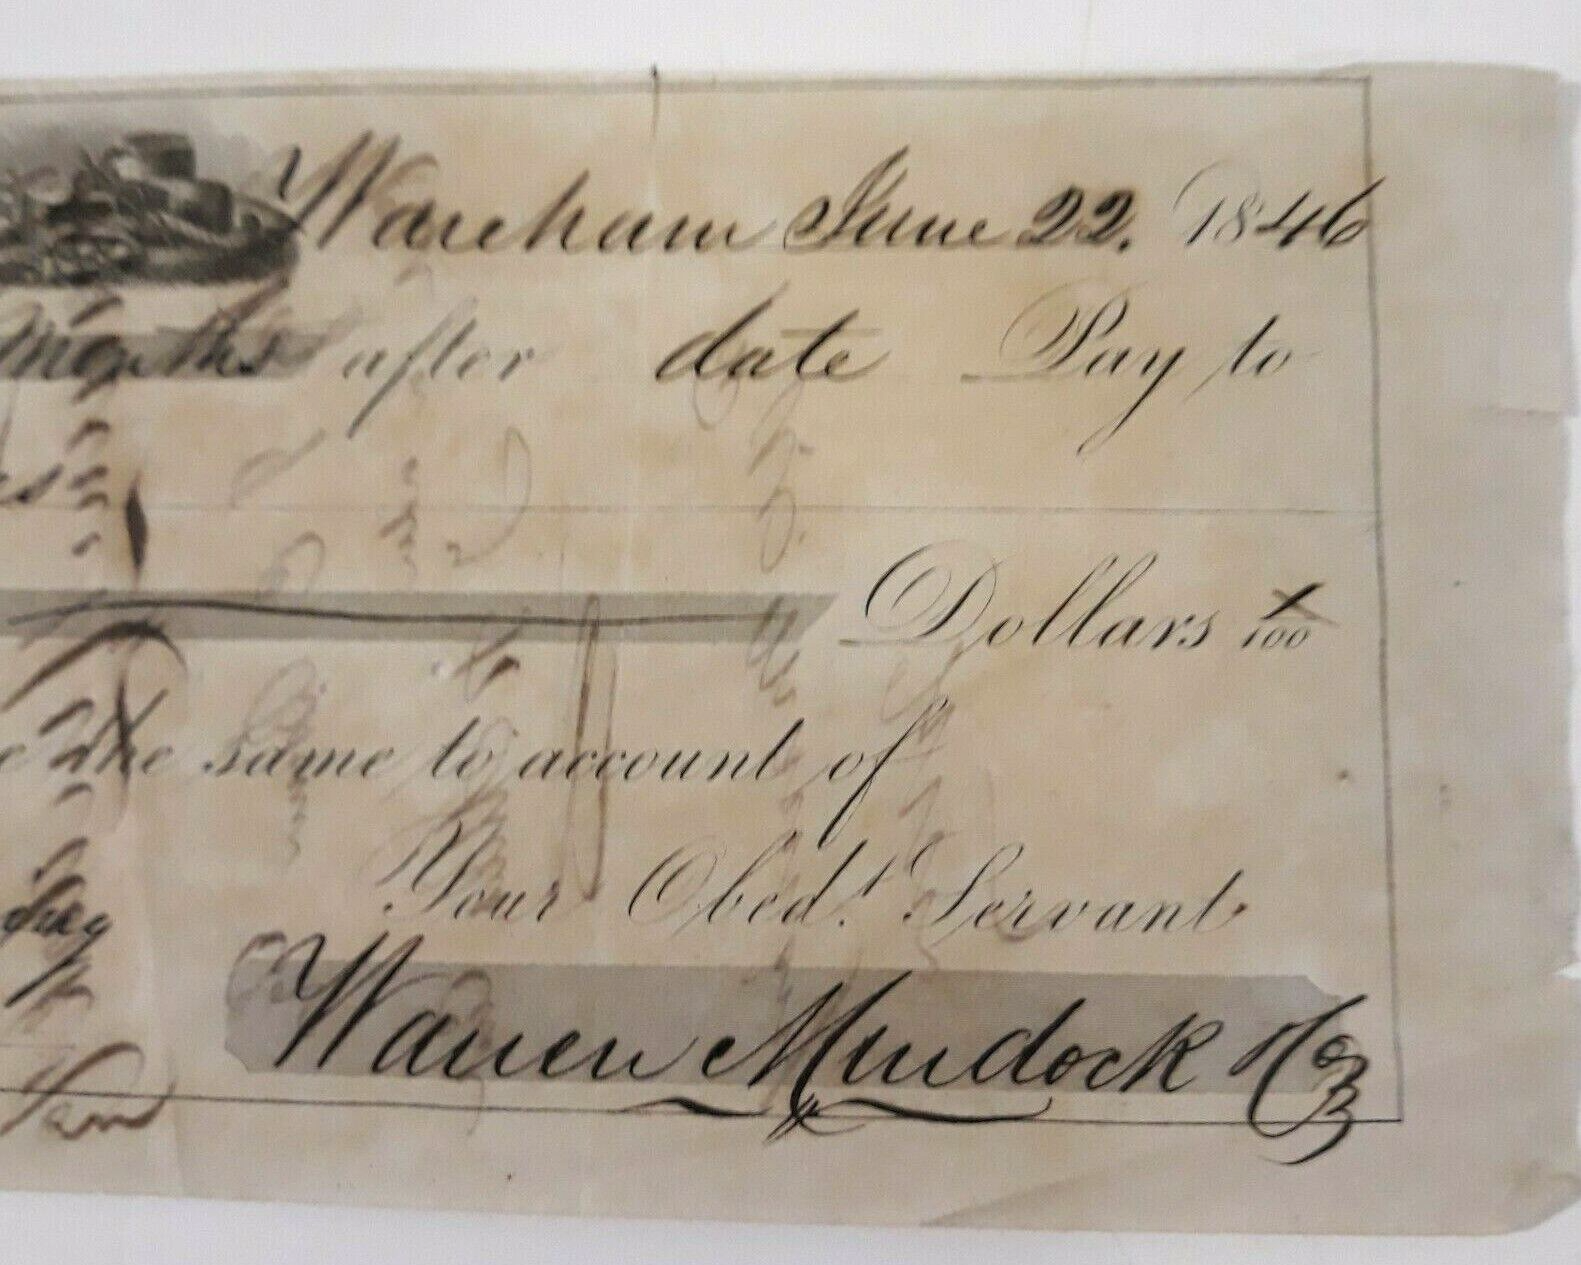 Wareham June 22. 1846
Months after date Pay to
Dollars /100
the same to account of
Your Obed.t Servant
Warren Murdock